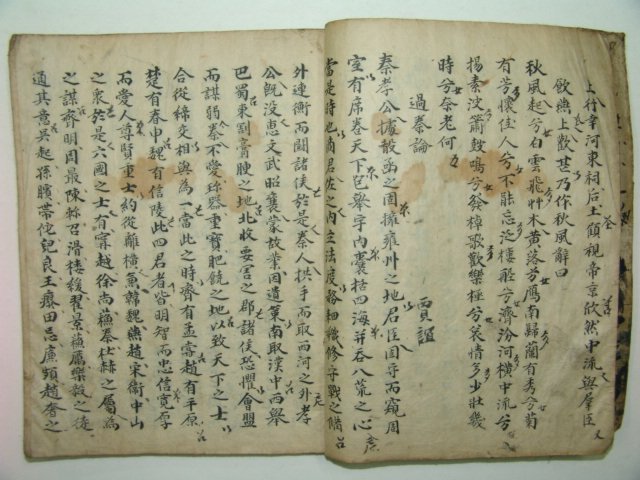 上行幸河東祠后土顧視帝京欣然中流與羣臣
飮燕上歡甚乃作秋風辭曰
秋風起兮白雲飛艸木黃落兮鴈南歸蘭有秀兮菊
有芳懷佳人兮不能忘泛樓舡兮濟汾河橫中流兮
揚素波簫鼓鳴兮發棹歌歡樂極兮哀情多少壯幾
時兮奈老何
過秦論
賈誼
秦孝公據殽函之固擁雍州之地君臣固守而窺周
室有席卷天下包擧宇內囊括四海并呑八荒之心
當是時也商君佐之內立法度務耕織修守戰之備
外連衡而鬪諸侯於是秦人拱手而取西河之外孝
公旣沒惠文武昭襄蒙故業因遺策南取漢中西擧
巴蜀東割膏腴之地北收要害之郡諸侯恐懼會盟
而謀弱秦不愛珍器重寶肥饒之地以致天下之士
合從締交相與爲一當此之時齊有孟嘗趙有平原
楚有春申魏有信陵此四君者皆明智而忠信寬厚
而愛人尊賢重士約從離橫魚韓魏燕趙宋衛中山
之衆於是六國之士有甯越徐尙蘇秦杜赫之屬爲
之謀齊明周最陳軫召滑樓緩翟景蘇厲樂毅之徒
通其意吳起孫臏帶佗兒良王廖田忌廉頗趙奢之